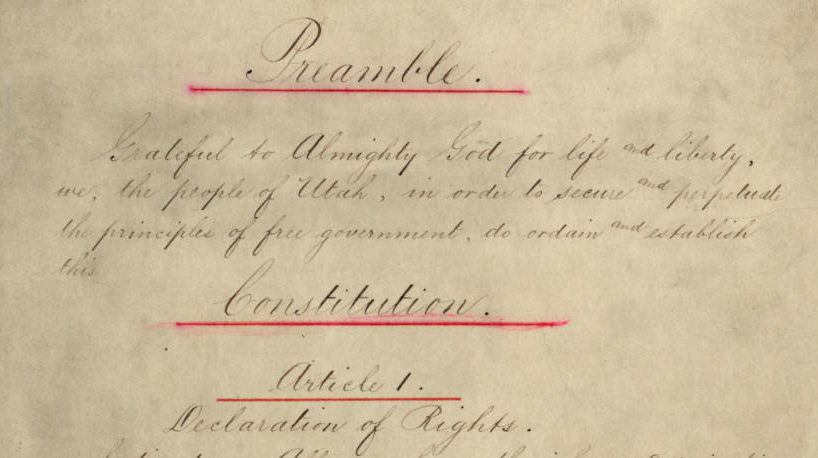 Preamble.
Grateful to Almighty God for life and liberty,
we, the people of Utah, in order to secure and perpetuate
the principles of free government, do ordain and establish
this
Constitution.
Article 1.
Declaration of Rights.